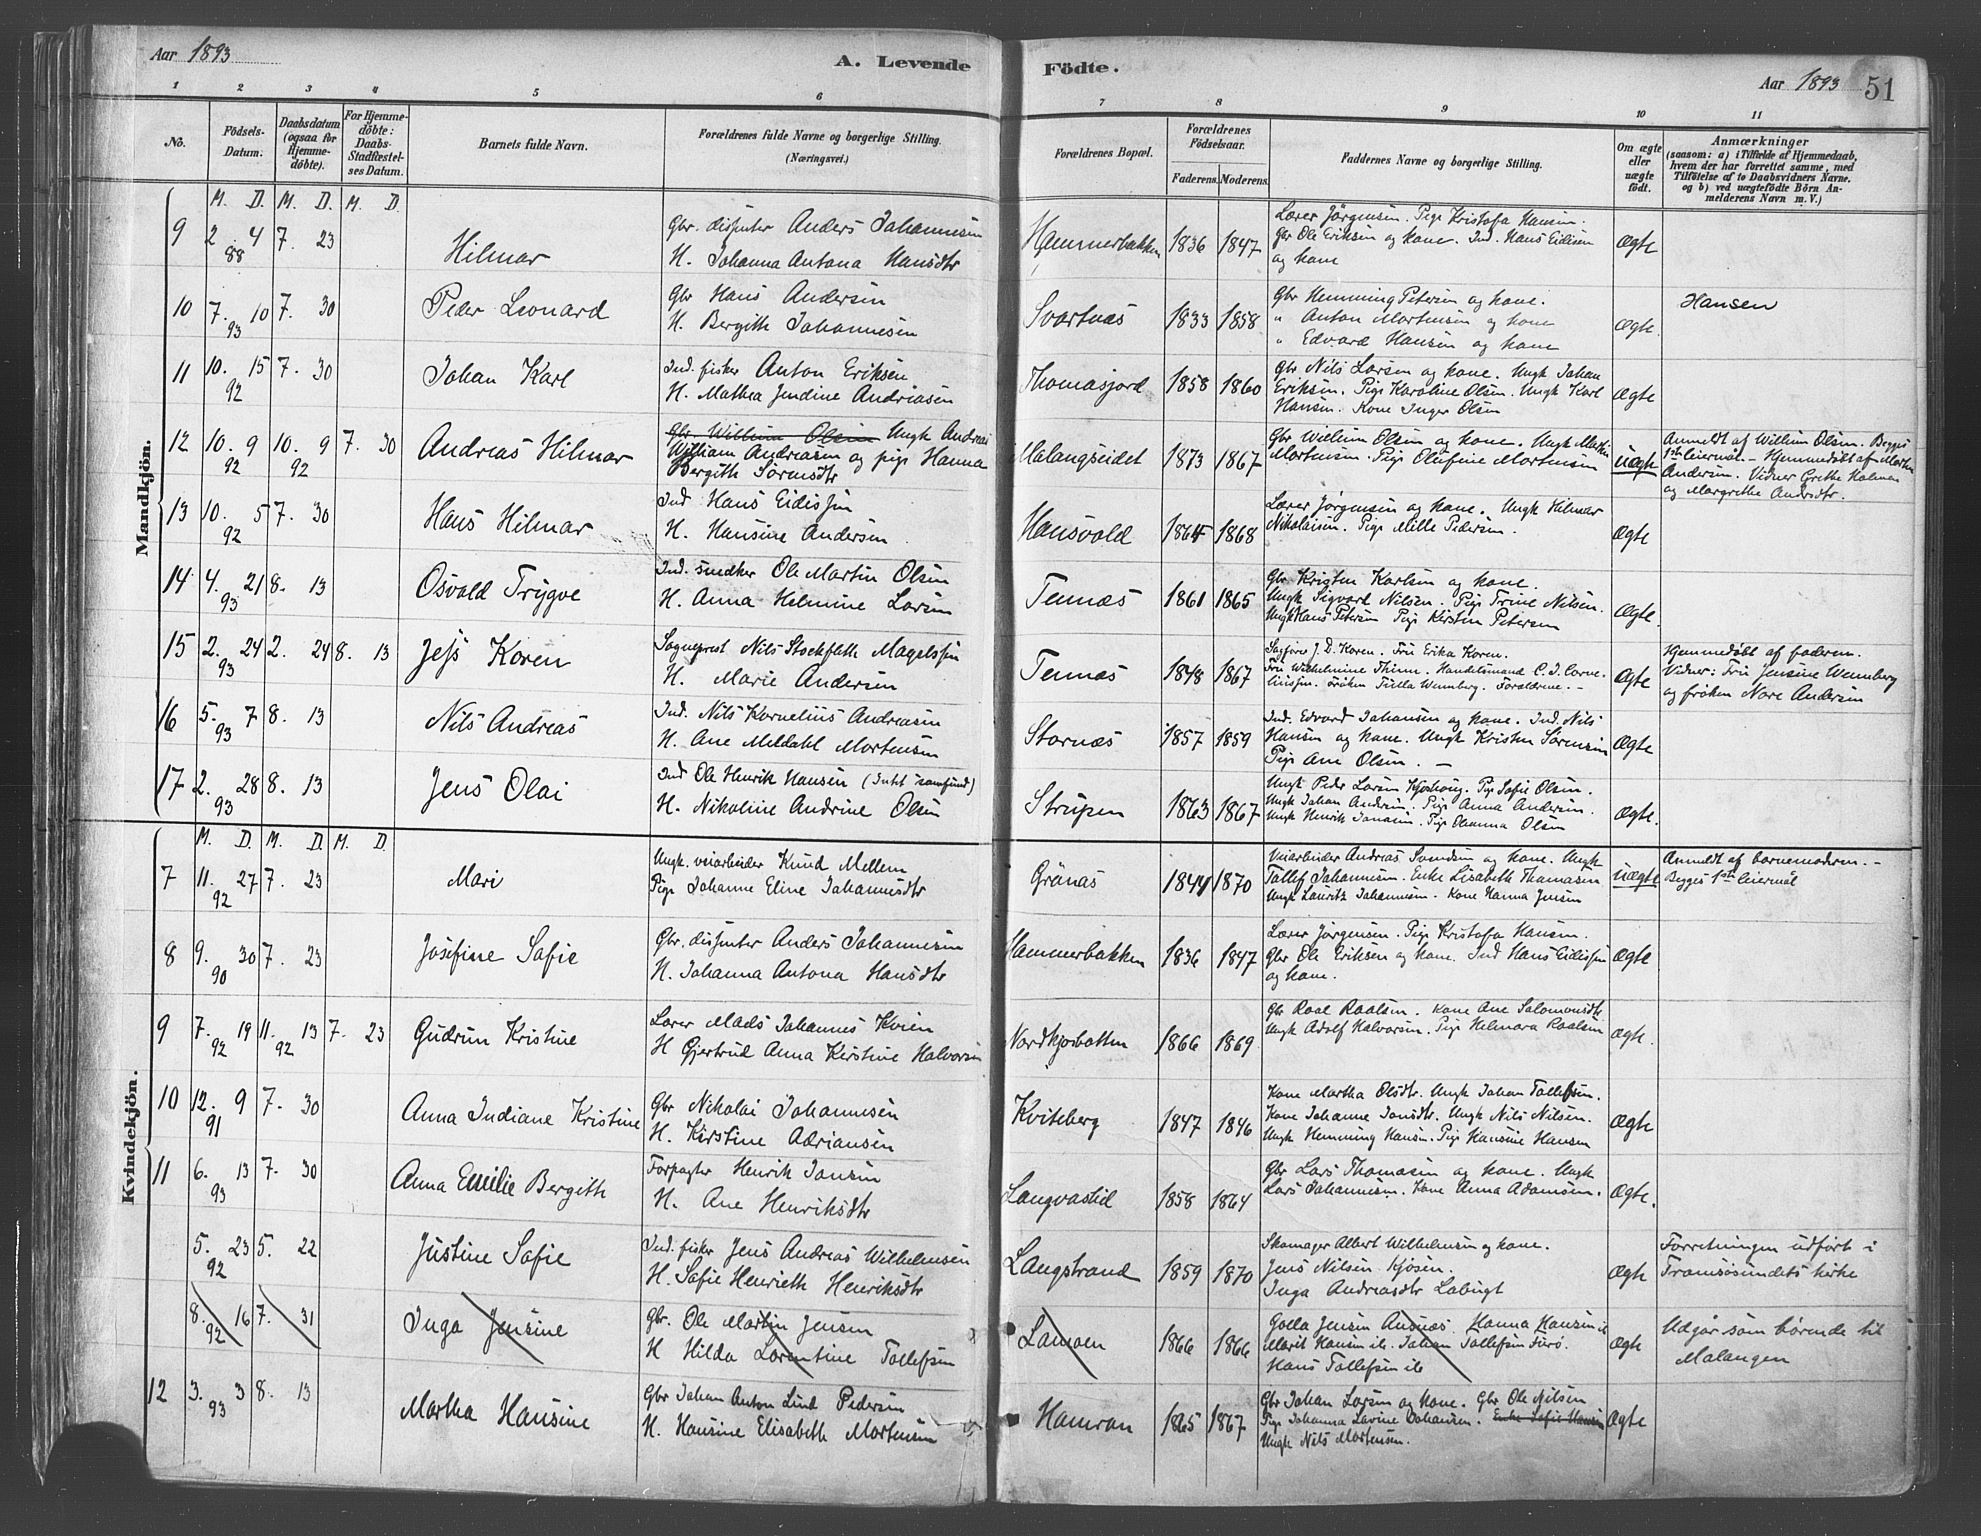 Aar 1893
A. Levende Födte.
Aar 1893 51
1 2 3 4 5 6 7 8 9 10 11
No.
Födsels-Datum.
Daabsdatum (ogsaa for Hjemme-döbte).
For Hjemme-döbte: Daabs-Stadfæstel-ses Datum.
Barnets fulde Navn.
Forældrenes fulde Navne og borgerlige Stilling.
(Næringsvei.)
Forældrenes Bopæl.
Forældrenes Födselsaar.
Faderens. Moderens.
Faddernes Navne og borgerlige Stilling.
Om ægte eller uægte födt.
Anmærkninger
(saasom: a) i Tilfælde af Hjemmedaab,
hvem der har forrettet samme, med
Tilföielse af to Daabsvidners Navne.
og b) ved uægtefödte Börn An-
melderens Navn m. V.)
Mandkjön.
M. D. M. D. M. D.
9 2 4 88 7. 23 Hilmar
Gbr. disputer Anders Johannesen
H. Johanna Antona Hansdtr
Hammerbakken 1836 1847
Lærer Jörgensen. Pige Kristofa Hansen.
Gbr Ole Eriksen og kone. Ind. Hans Eidisen
og kone
Ægte
10 7. 10 93 7. 30 Peder Leonard
Gbr Hans Andersen
H. Bergith Johannesen
Svartnæs 1833 1858
Gbr Hemming Petersen og kone.
" Anton Mortensen og kone
" Edvard Hansen og kone
Ægte.
Hansen
11 10. 15 92 7. 30 Johan Karl
Ind. fisker Anton Eriksen
H. Mathea Jendine Andreasen
Thomasjord 1858 1860
Gbr Nils Larsen og kone. Ungk Johan
Eriksen. Pige Karoline Olsen. Ungk Karl
Hansen. Kone Inger Olsen
Ægte
12 10. 9 92 10. 9 92 7. 30 Andreas Hilmar
Gbr. Willum Olsen Ungk Andreas
William Andreasen og pige Hanna
Bergith Sörensdtr
Malangseidet 1873 1867
Gbr Willum Olsen og kone. Ungk Martin
Mortensen. Pige Olufine Mortensen
uægte
Anmeldt af Willum Olsen. Begges
1ste leiermål. - Hjemmedöbt af Morten
Andersen. Vidner Grethe Holmen
og Margrethe Andrsdtr.
13 10. 5 92 7. 30 Hans Hilmar
Ind Hans Eidissen
H. Hansine Andersen.
Hansvold 1864 1868
Lærer Jörgensen og kone. Ungk Hilmar
Nikolaisen. Pige Mille Pedersen.
Ægte
14 4. 21 93 8. 13 Osvald Trygve
Ind. snedker Ole Martin Olsen
H. Anna Helmine Larsen
Tennæs 1861 1865
Gbr Kristen Karlsen og kone.
Ungk Sigvart Nilsen. Pige Trine Nilsen.
Ungk Hans Petersen Pige Kirsten Petersen
Ægte.
15 2. 24 93 2. 24 8. 13 Jess Koren
Sogneprest Nils Stockfleth Magelssen
H. Marie Andersen
Tennæs 1848 1867
Sagförer J. D. Koren. Fru Erika Koren.
Fru Wilhelmine Thinn. Handelsmand C. J. Corne-
liussen. fröken Tulla Wennberg. Forældrene. -
Ægte
Hjemmedöbt af faderen.
Vidner: Fru Jensine Wennberg
og fröken Nore Andersen
16 5. 7 93 8. 13 Nils Andreas
Ind. Nils Kornelius Andreasen
H. Ane Meldahl Mortensen
Stornæs 1857 1859
Ind. Edvard Johansen og kone. Ind. Nils
Hansen og kone. Ungk Kristen Sörensen
Pige Ane Olsen. -
Ægte
17 2. 28 93 8. 13 Jens Olai
Ind Ole Henrik Hansen (Intet samfund)
H. Nikoline Andrine Olsen
Strupen 1863 1867
Ungk Peder Larsen Kjoshaug. Pige Sofie Olsen.
Ungk Johan Andersen. Pige Anna Andersen.
Ungk Henrik Jonasen. Pige Oleanna Olsen
Ægte.
Kvindekjön.
M. D. M. D. M. D.
7 11. 27 92 7. 23 Mari
Ungk. veiarbeider Knud Mellem
Pige Johanne Eline Johannesdtr
Grönås 1844 1870
Veiarbeider Andreas Svendsen og kone. Ungk
Tollef Johannesen. Enke Lisabeth Thomasen
Ungk Lauritz Johannesen. Kone Hanna Jensen
uægte
Anmeldt af barnemoderen. -
Begges 1ste leiermål
8 9. 30 90 7. 23 Josefine Sofie
Gbr. disputer Anders Johannesen
H. Johanna Antona Hansdtr
Hammerbakken 1836 1847
Lærer Jörgensen. Pige Kristofa Hansen.
Gbr Ole Eriksen og kone. Ind Hans Eidissen
og kone.
Ægte
9 7. 19 92 11. 13 92 7. 23 Gudrun Kristine
Lærer Mads Johannes Kvien
H Gjertrud Anna Kirstine Halvorsen
Nordkjosbotten 1866 1869
Gbr Roal Roalsen. Kone Ane Salomonsdtr
Ungk Adolf Halvorsen. Pige Helmara Roalsen
Ægte.
10 12. 9 91 7. 30 Anna Indiane Kristine
Gbr Nikolai Johannesen
H. Kirstine Adriansen
Kviteberg 1847 1846
Kone Martha Olsdtr. Ungk Johan Tollefsen.
Kone Johanne Jonsdtr. Ungk Nils Nilsen.
Ungk Hemming Hansen. Pige Hansine Hansen
Ægte
11 6. 13 93 7. 30 Anna Emilie Bergith
Forpagter Henrik Jonsen
H. Ane Henriksdtr
Langvastid 1858 1864
Gbr Lars Thomasen og kone. Ungk
Lars Johannesen. Kone Anna Adamsen.
Ægte.
5. 23 92 5. 22 Justine Sofie
Ind. fisker Jens Andreas Wilhelmsen
H. Sofie Henrieth Henriksdtr
Langstrand 1859 1870
Skomager Albert Wilhelmsen og kone.
Jens Nilsen Kjosen.
Inga Andreasdtr Labugt
Ægte
Forretningen udfört i
Tromsösundets kirke
8. 16 92 7. 31 Inga Jensine
Gbr. Ole Martin Jensen
H Hilda Lorentine Tollefsen
Lamoen 1866 1866
Golla Jensen Ausnæs. Hanna Hansen ib
Marit Hansen ib. Johan Tollefsen Furö.
Hans Tollefsen ib
Ægte
Udgår som hörende til
Malangen
12 3. 3 93 8. 13 Martha Hansine
Gbr Johan Anton Lind Pedersen
H. Hansine Elisabeth Mortensen
Hamran 1865 1867
Gbr Johan Larsen og kone. Gbr Ole Nilsen
Pige Johanna Lavine Johansen. Enke Sofie Hansen
Ungk Nils Mortensen.
Ægte